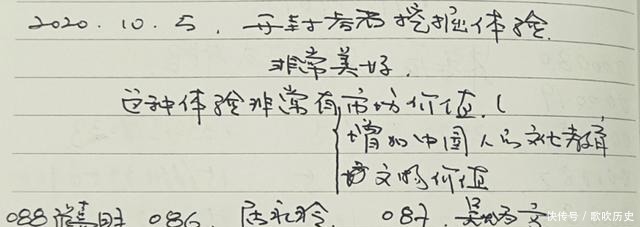 2020.10.5, 考古挖掘体验.
非常美好.
这种体验非常有市场价值.(
增加中国人的文化教育
文物价值
088 086. 087.
快传号/歌吹历史